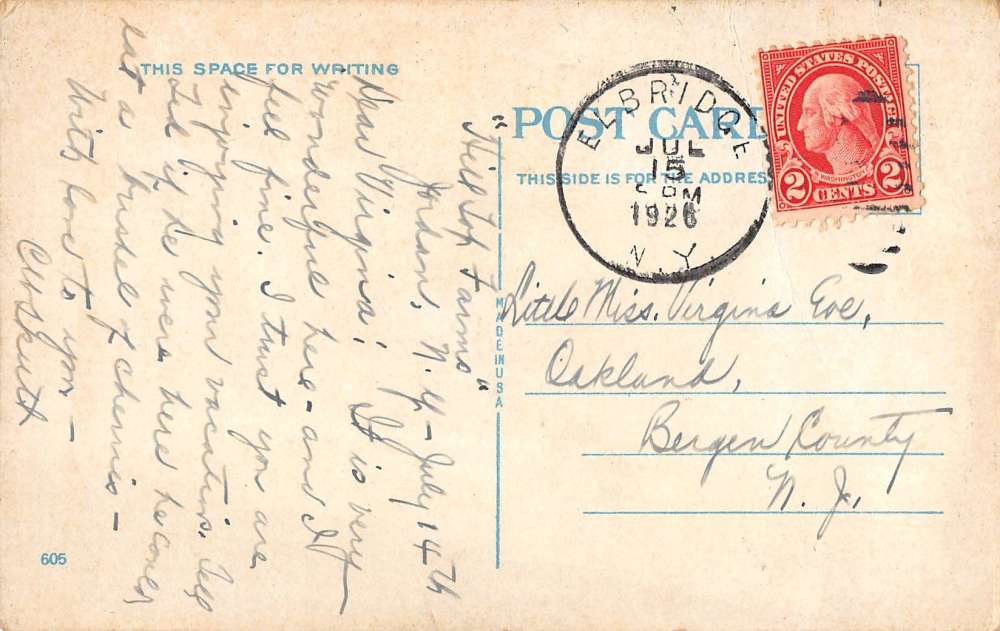 THIS SPACE FOR WRITING
"Hill top Farms"
Jordan, N.Y. - July 14th
Dear Virginia: It is very
wonderful here - and I
feel fine. I trust you are
enjoying your vacation. Tell
Ted if he were here he could
eat a bushel of cherries -
With love to you -
POST CARD
THIS SIDE IS FOR THE ADDRESS
ELBRIDGE
JUL
15
PM
1926
N.Y.
UNITED STATES POSTAGE
WASHINGTON
2 CENTS 2
MADE IN USA
Little Miss. Virginia Eve,
Oakland,
Bergen County
N. J.
605